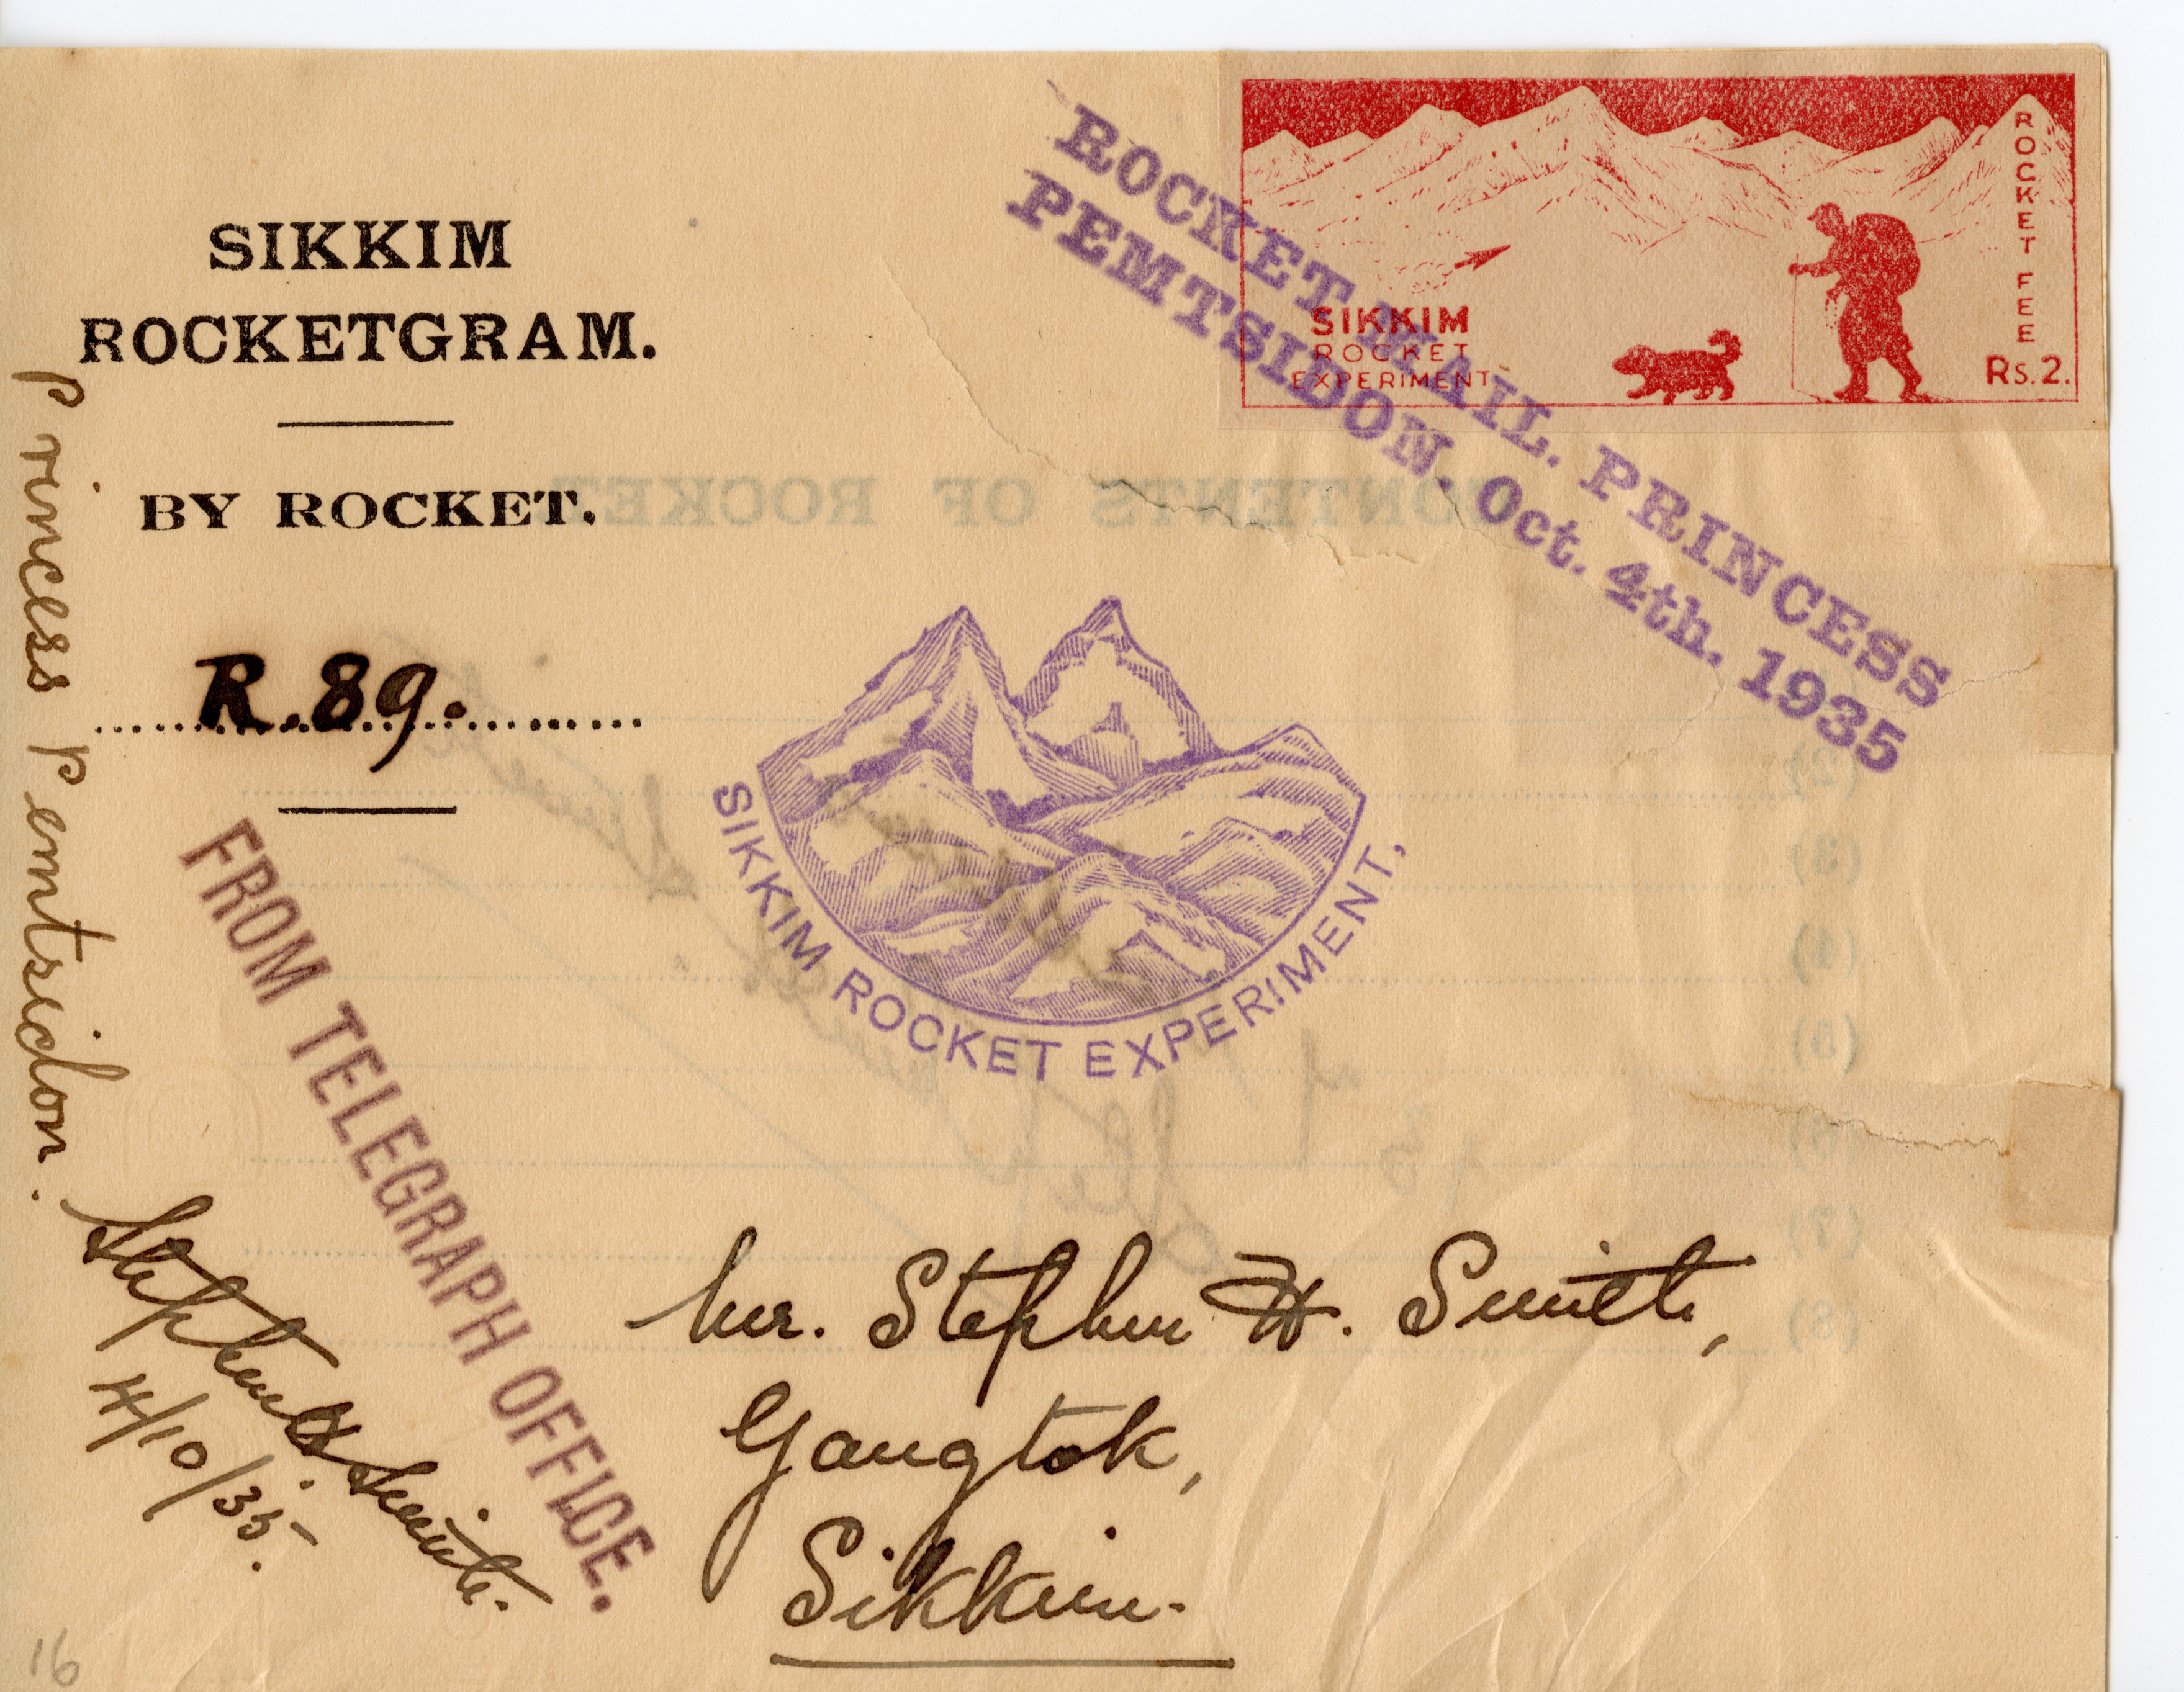 SIKKIM
ROCKETGRAM.
BY ROCKET.
R.89.
ROCKET MAIL. PRINCESS
PEMTSIDON. Oct. 4th. 1935
ROCKET FEE
Rs. 2.
SIKKIM
ROCKET
EXPERIMENT
CONTENTS OF ROCKET
(2)
(3)
(4)
(5)
(6)
(7)
(8)
SIKKIM ROCKET EXPERIMENT,
Princess Pemtsidon.
FROM TELEGRAPH OFFICE.
Stephen H. Smith.
4/10/35.
Mr. Stephen H. Smith,
Gangtok,
Sikkim.
16